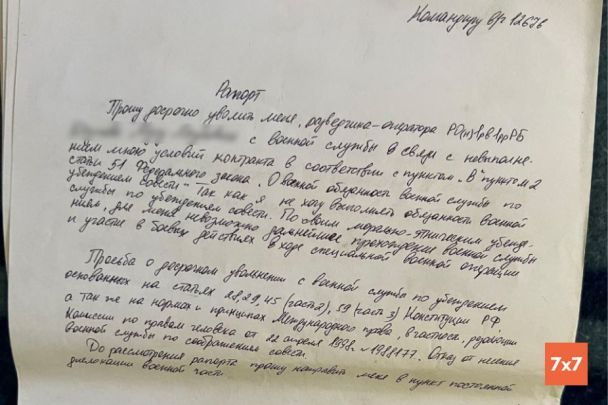 Командиру в/ч 12676
Рапорт
Прошу досрочно уволить меня, разведчика-оператора РО(н)1рв1ррРБ
с военной службы в связи с невыполне-
нием мною условий контракта в соответствии с пунктом „В" пунктом 2
статьи 51 Федерального закона „О военной обязанность военной службы по
убеждением совести" Так как я не хочу выполнять обязанность военной
службы по убеждением совести. По своим морально-этническим убежде-
ниям, для меня невозможно дальнейшие прохождение военной службы
и участие в боевых действиях в ходе специальной военной операции
Просьба о досрочном увольнении с военной службы по убеждением
основанных на статьях 28,29,45 (часть2), 59 (часть 3) Конституции РФ.
а так же на нормах и принципах Международного право, в частност,
Комиссии по правам человека от 22 апреля 1998г №1998\77. Отказ от несения
Военной службы по соображением совести.
До рассмотрения рапорта прошу направить меня в пункт постоянной
дислокации военной части
7x7